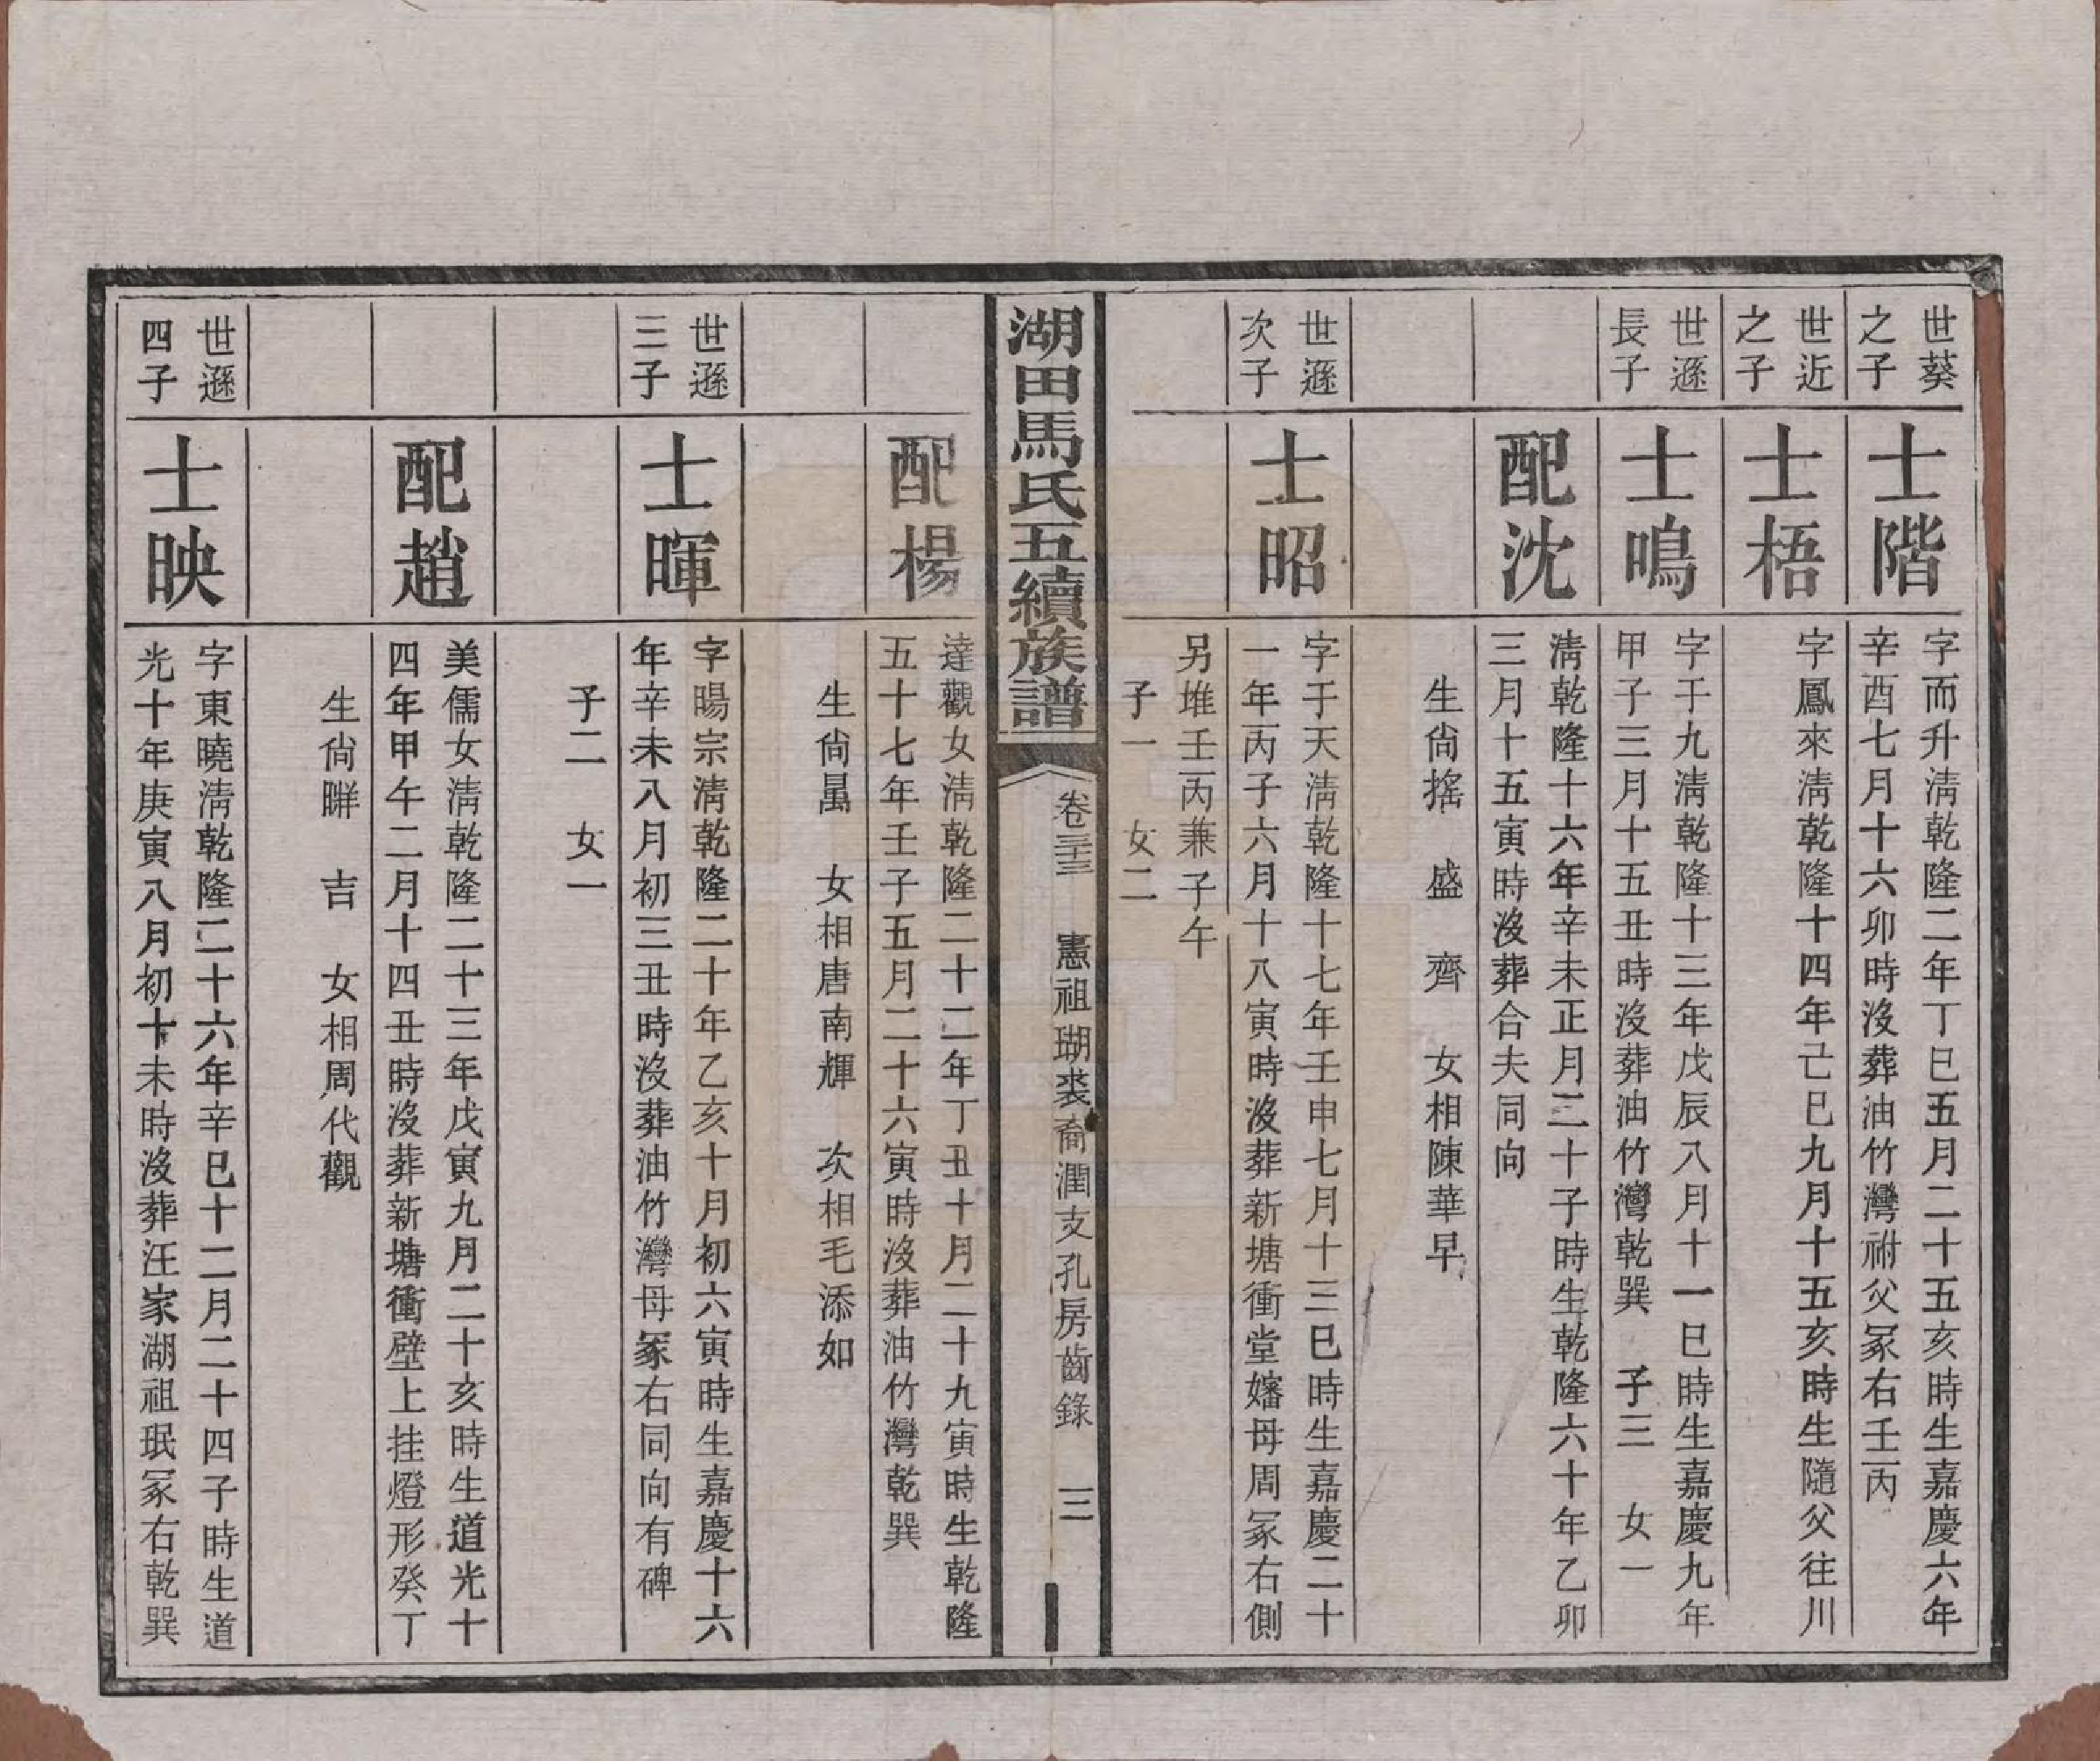 世葵
之子
士階
字而升淸乾隆二年丁巳五月二十五亥時生嘉慶六年
辛酉七月十六卯時沒葬油竹灣祔父冢右壬丙
世近
之子
士梧
字鳳來淸乾隆十四年己巳九月十五亥時生隨父往川
世遜
長子
士鳴
字于九淸乾隆十三年戊辰八月十一巳時生嘉慶九年
甲子三月十五丑時沒葬油竹灣乾巽 子三 女一
配沈
淸乾隆十六年辛未正月二十子時生乾隆六十年乙卯
三月十五寅時沒葬合夫同向
生尙搖 盛 齊 女相陳華早
世遜
次子
士昭
字于天淸乾隆十七年壬申七月十三巳時生嘉慶二十
一年丙子六月十八寅時沒葬新塘衝堂嬸母周冢右側
另堆壬丙兼子午
子一 女二
湖田馬氏五續族譜
卷三十三 憲祖瑚裘裔潤支孔房齒錄 三
配楊
達觀女淸乾隆二十二年丁丑十月二十九寅時生乾隆
五十七年壬子五月二十六寅時沒葬油竹灣乾巽
生尙暠 女相唐南輝 次相毛添如
世遜
三子
士暉
字暘宗淸乾隆二十年乙亥十月初六寅時生嘉慶十六
年辛未八月初三丑時沒葬油竹灣母冢右同向有碑
子二 女一
配趙
美儒女淸乾隆二十三年戊寅九月二十亥時生道光十
四年甲午二月十四丑時沒葬新塘衝壁上挂燈形癸丁
生尙 吉 女相周代觀
世遜
四子
士映
字東曉淸乾隆二十六年辛巳十二月二十四子時生道
光十年庚寅八月初十未時沒葬汪家湖祖珉冢右乾巽